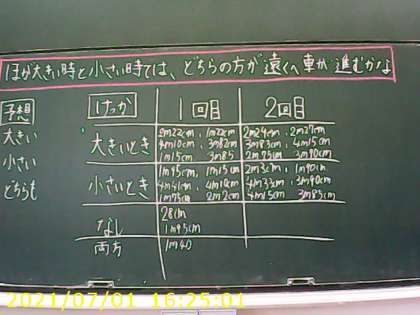 ほが大きい時と小さい時では、どちらの方が遠くへ車が進むかな
予想
けっか
1回目
2回目
大きい
小さい
どちらも
大きいとき
2m22cm, 1m22cm
4m10cm, 3m82cm
1m15cm 3m85
2m24cm, 2m27cm
3m83cm, 4m15cm
2m75cm 3m90cm
小さいとき
1m95cm, 1m15cm
4m41cm, 4m10cm
1m75cm 2m2cm
2m3cm, 1m90cm
4m33cm, 3m90cm
4m15cm 3m85cm
なし
28cm
1m95cm
両方
1m40
2021/07/01 16:25:01